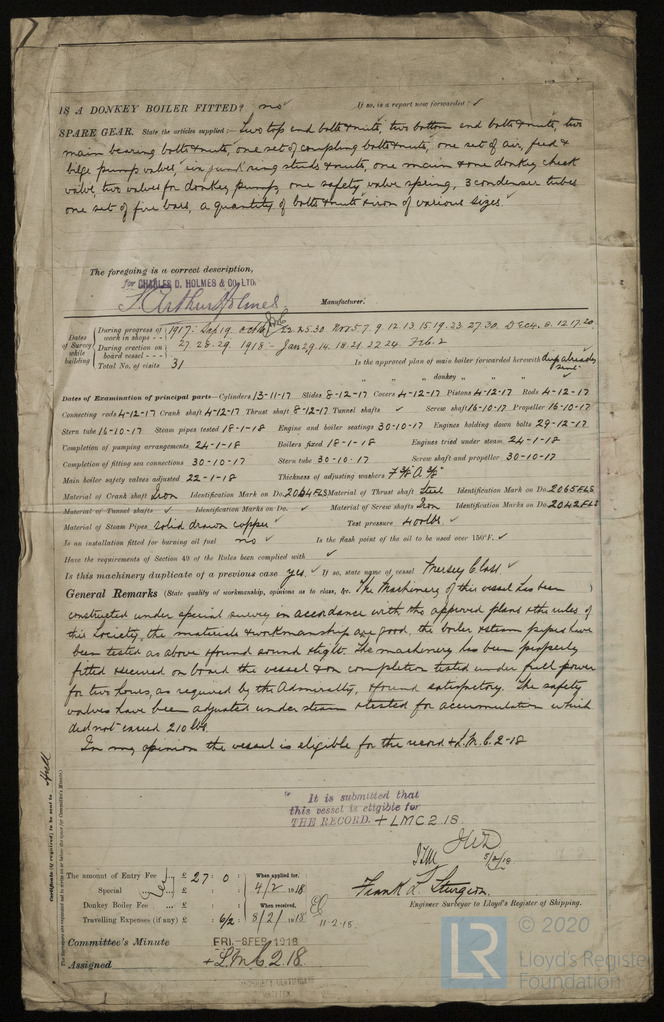 IS A DONKEY BOILER FITTED? no If so, is a report now forwarded? ✓
SPARE GEAR. State the articles supplied:— Two top end bolts & nuts, two bottom end bolts & nuts, two
main bearing bolts & nuts, one set of coupling bolts & nuts, one set of air, feed &
bilge pump valves, ring studs & nuts, one main & one donkey check
valve, two valves for donkey pump, one safety valve spring, 3 condenser tubes
one set of fire bars, a quantity of bolts & nuts & iron of various sizes.
The foregoing is a correct description,
for CHARLES D. HOLMES & CO. LTD.
Arthur Holmes Manufacturer.
Dates of Survey while building
During progress of work in shops - - 1917:- Sep 19. Oct 16. 22. 25. 30. Nov 5. 7. 9. 12. 13. 15. 19. 23. 27. 30. Dec 4. 8. 12. 17. 20.
During erection on board vessel - - - 27. 28. 29. 1918 - Jan 2. 9. 14. 18. 21. 22. 24. Feb. 2
Total No. of visits 31 Is the approved plan of main boiler forwarded herewith dup already sent
" " " donkey " " "
Dates of Examination of principal parts—Cylinders 13-11-17 Slides 8-12-17 Covers 4-12-17 Pistons 4-12-17 Rods 4-12-17
Connecting rods 4-12-17 Crank shaft 4-12-17 Thrust shaft 8-12-17 Tunnel shafts ✓ Screw shaft 16-10-17 Propeller 16-10-17
Stern tube 16-10-17 Steam pipes tested 18-1-18 Engine and boiler seatings 30-10-17 Engines holding down bolts 29-12-17
Completion of pumping arrangements 24-1-18 Boilers fixed 18-1-18 Engines tried under steam 24-1-18
Completion of fitting sea connections 30-10-17 Stern tube 30-10-17 Screw shaft and propeller 30-10-17
Main boiler safety valves adjusted 22-1-18 Thickness of adjusting washers
Material of Crank shaft Iron Identification Mark on Do. 2064FLS Material of Thrust shaft Steel Identification Mark on Do. 2065FLS
Material of Tunnel shafts ✓ Identification Marks on Do. ✓ Material of Screw shafts Iron Identification Marks on Do. 2042FLS
Material of Steam Pipes solid drawn copper ✓ Test pressure 400 lbs. ✓
Is an installation fitted for burning oil fuel no ✓ Is the flash point of the oil to be used over 150°F. ✓
Have the requirements of Section 49 of the Rules been complied with ✓
Is this machinery duplicate of a previous case yes. ✓ If so, state name of vessel Mersey Class ✓
General Remarks (State quality of workmanship, opinions as to class, &c. The Machinery of this vessel has been )
constructed under special survey in accordance with the approved plans & the rules of
this Society, the materials & workmanship are good, the boiler & steam pipes have
been tested as above & found sound & tight. The machinery has been properly
fitted & secured on board the vessel & on completion tested under full power
for two hours, as required by the Admiralty, & found satisfactory. The safety
valves have been adjusted under steam & tested for accumulation which
did not exceed 210 lbs.
In my opinion the vessel is eligible for the record + L.M.C. 2-18
It is submitted that
this vessel is eligible for
THE RECORD. + LMC 2.18.
5/2/18
Certificate (if required) to be sent to Hull
The amount of Entry Fee ... £ 27 : 0 : When applied for,
Special ... £ : : 4/2 1918
Donkey Boiler Fee ... £ : : When received,
Travelling Expenses (if any) £ : 6/2 8/2/1918 11-2-18.
Frank L Sturgeon
Engineer Surveyor to Lloyd's Register of Shipping.
Committee's Minute FRI. 8 FEB. 1918
Assigned + L.M.C. 2.18.
© 2020
LR Lloyd's Register
Foundation